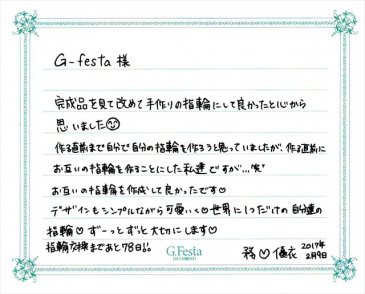 G-festa 様
完成品を見て改めて手作りの指輪にして良かったと心から
思いました
作る直前まで自分で自分の指輪を作ろうと思っていましたが、作る直前に
お互いの指輪を作ることにした私達ですが...笑
お互いの指輪を作成して良かったです♡
デザインもシンプルながら可愛いく♡世界に1つだけの自分達の
指輪♡ずーっとずっと大切にします♡
指輪交換まであと78日!!
G.Festa
DIAMOND
務♡優衣
2017年
2月9日